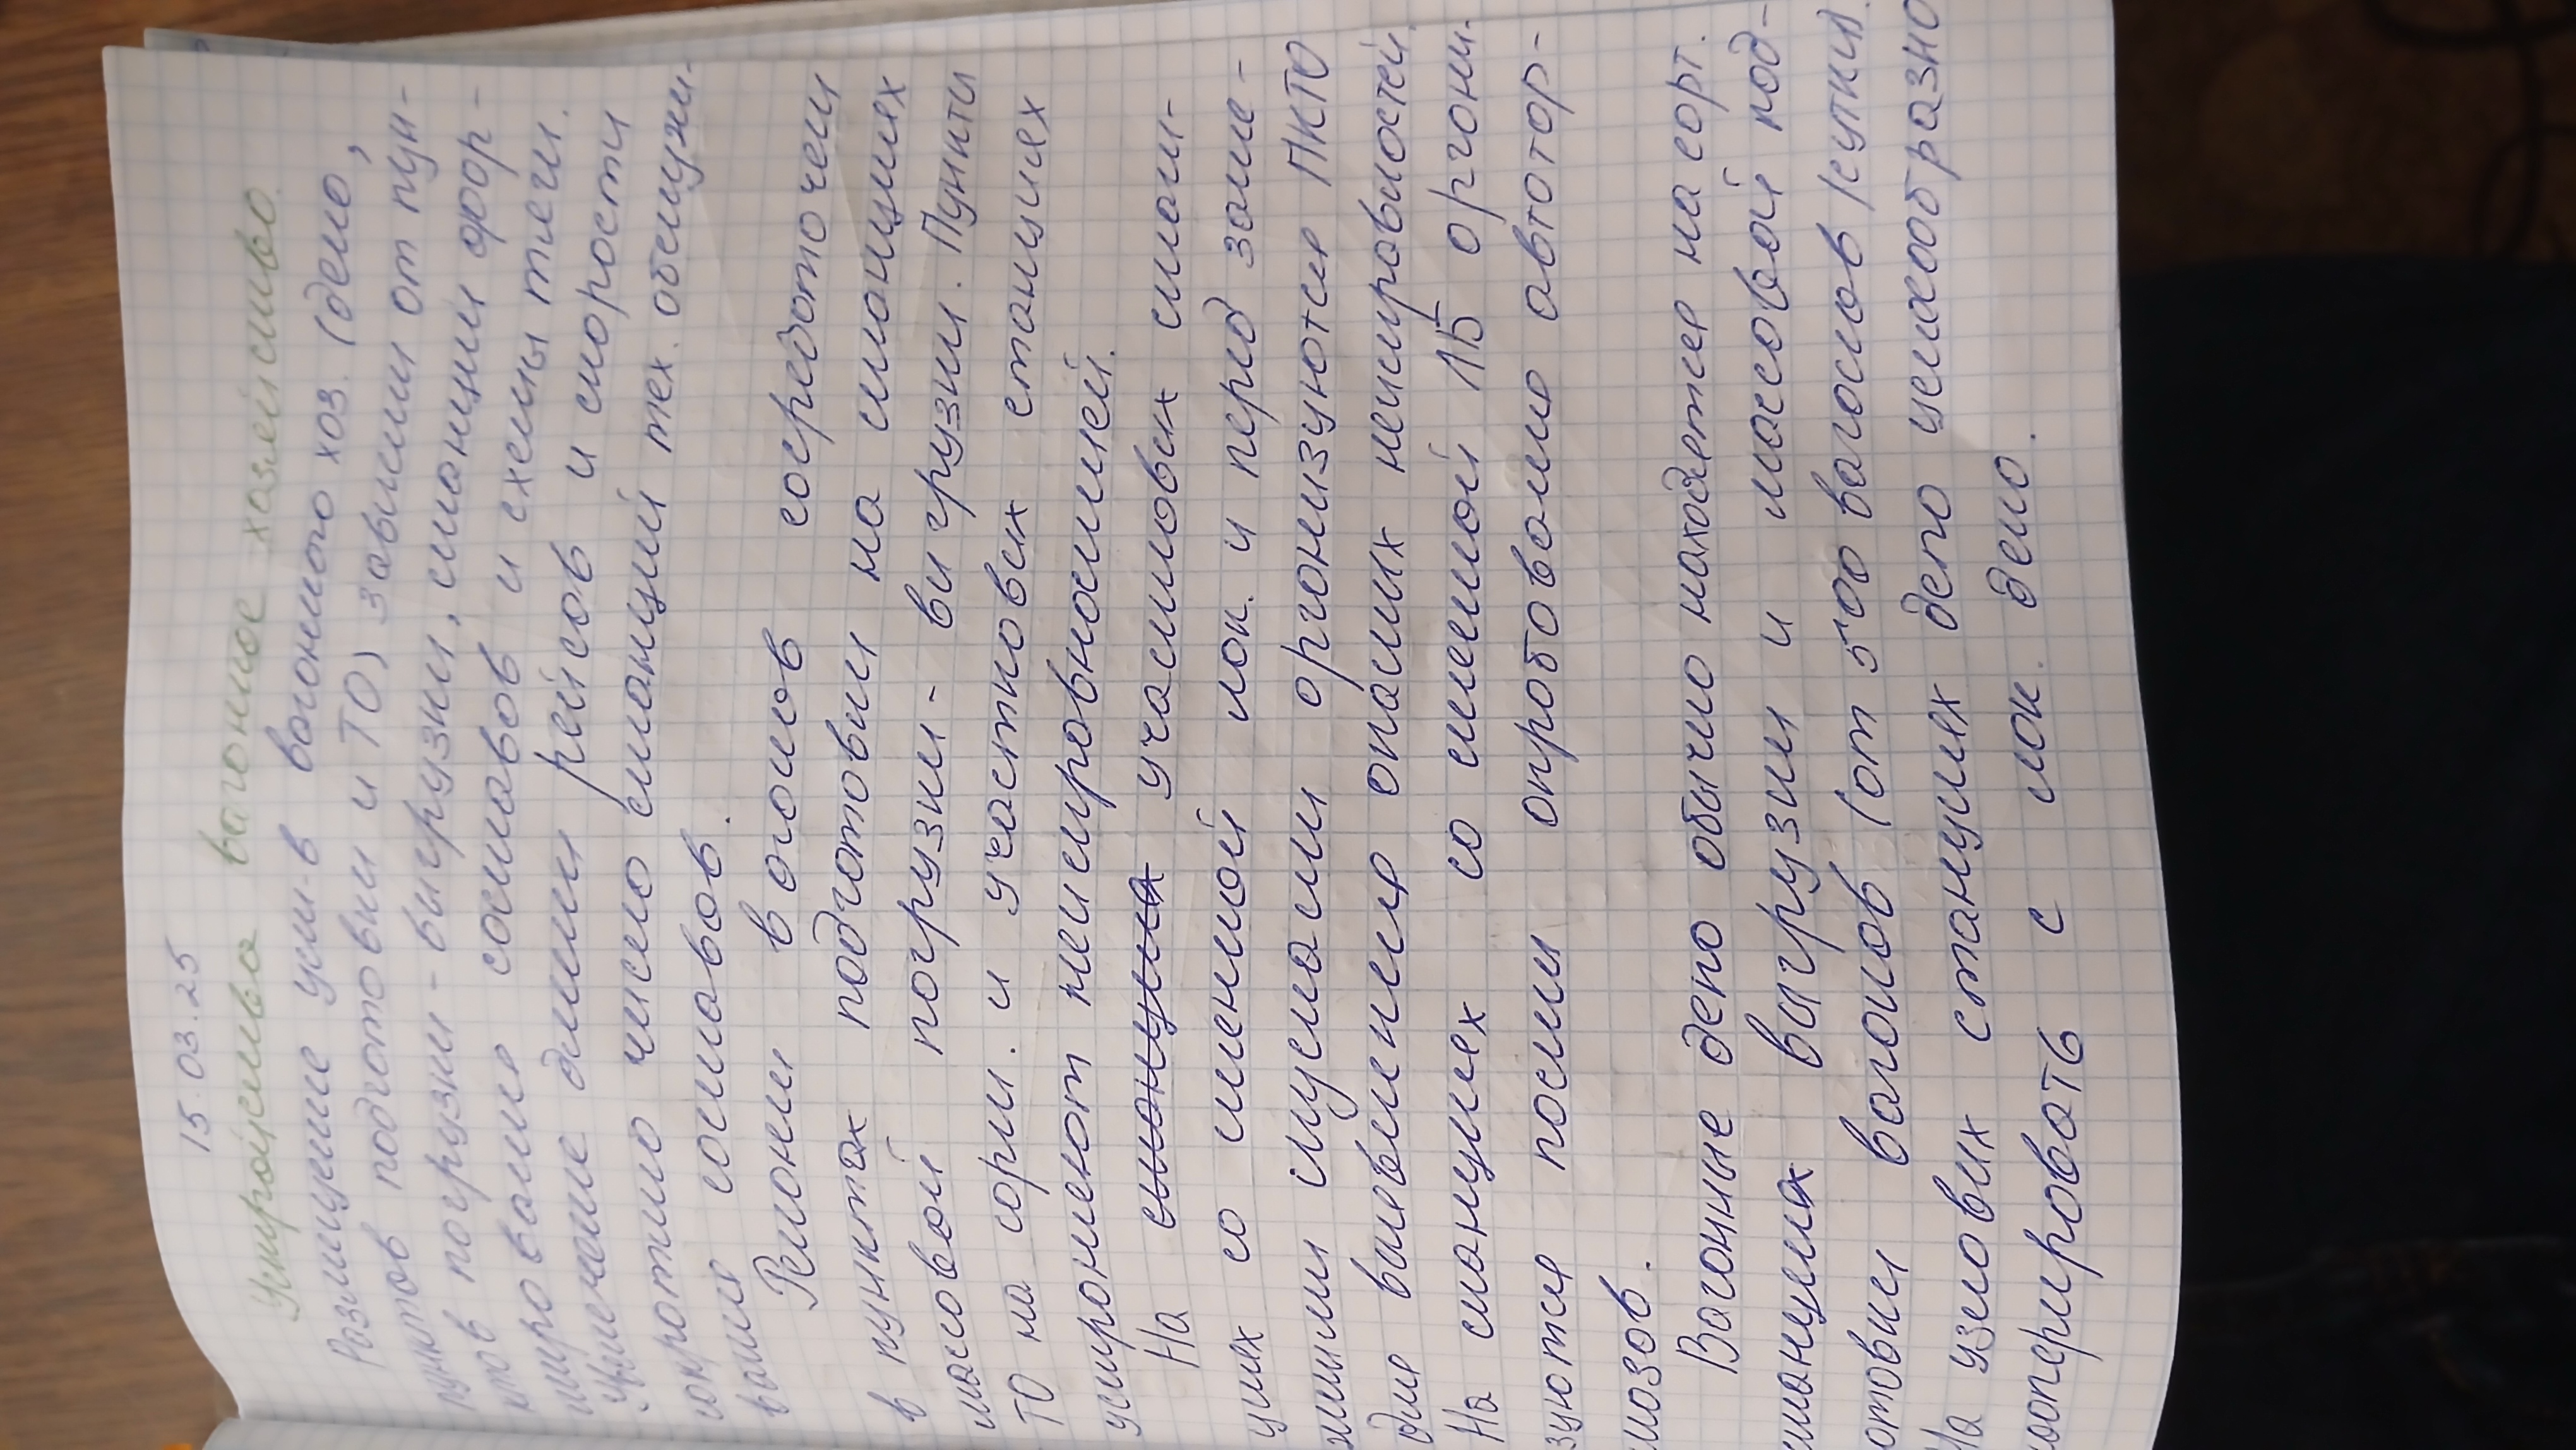 15.03.25
Устройства вагонное хозяйство.
Размещение уст-в вагонного хоз. (депо,
пунктов подготовки и ТО) зависит от пун-
ктов погрузки-выгрузки, станции фор-
мирования составов и схемы тяги.
Увеличение длины рейсов и скорости
сократило число станций тех. обслужи-
вания составов.
Ремонт вагонов сосредоточен
в пунктах подготовки на станциях
массовой погрузки-выгрузки. Пункты
ТО на сорт. и участковых станциях
устраняют неисправностией.
На станциях участковых стан-
циях со сменной лок. и перед затя-
жными спусками организуются ПКТО
для выявления опасных неисправностей.
На станциях со сменной ЛБ органи-
зуются посты опробования автотор-
мозов.
Вагонные депо обычно находятся на сорт.
станциях выгрузки и массовой под-
отовки вагонов (от 500 вагонов /сутки).
На узловых станциях депо целесообразно
кооперировать с лок. депо.